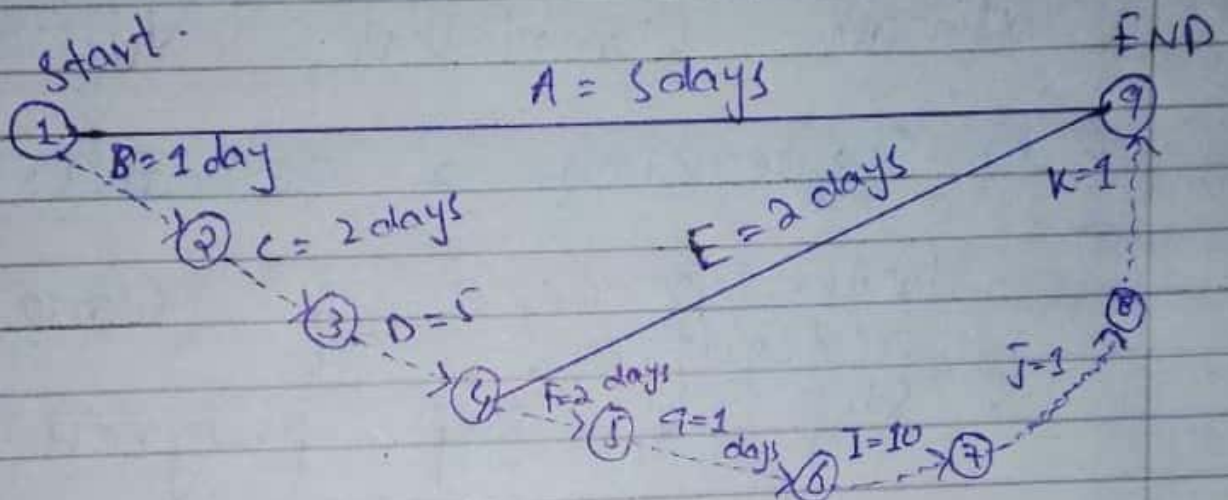 Start.
END
A = 5days
1
9
B=1 day
K=1
2
C= 2days
E = 2 days
3
D=5
8
J=1
4
F=2 days
5
G=1 days
6
I=10
7